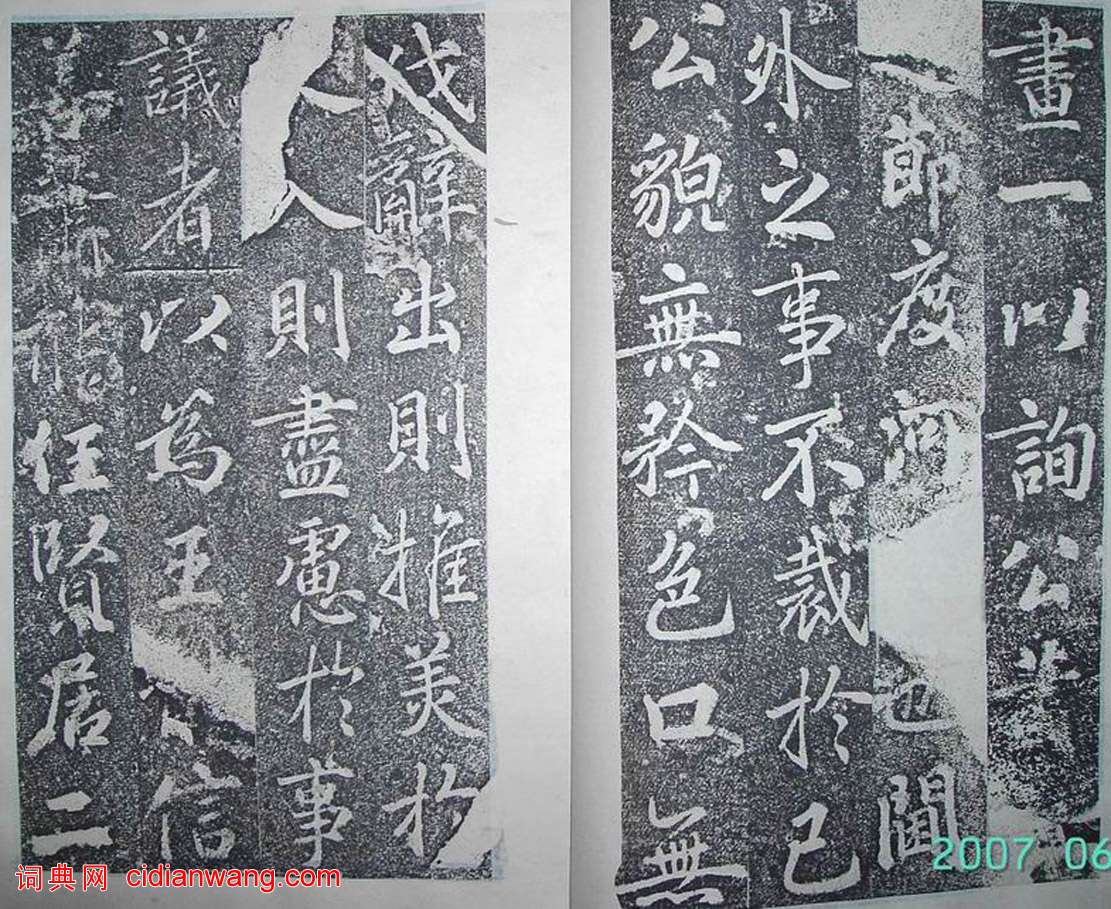 畫一以詢公
節度河也閫
外之事不裁於己
公貌無矜色口無
伐辭出則推美於
人入則盡慮於事
議者以爲王信
任賢居二
2007 06
词典网 cidianwang.com